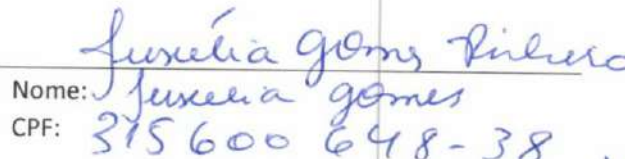 Juscélia Gomes Pinheiro
Nome: Juscelia gomes
CPF: 315600 648-38